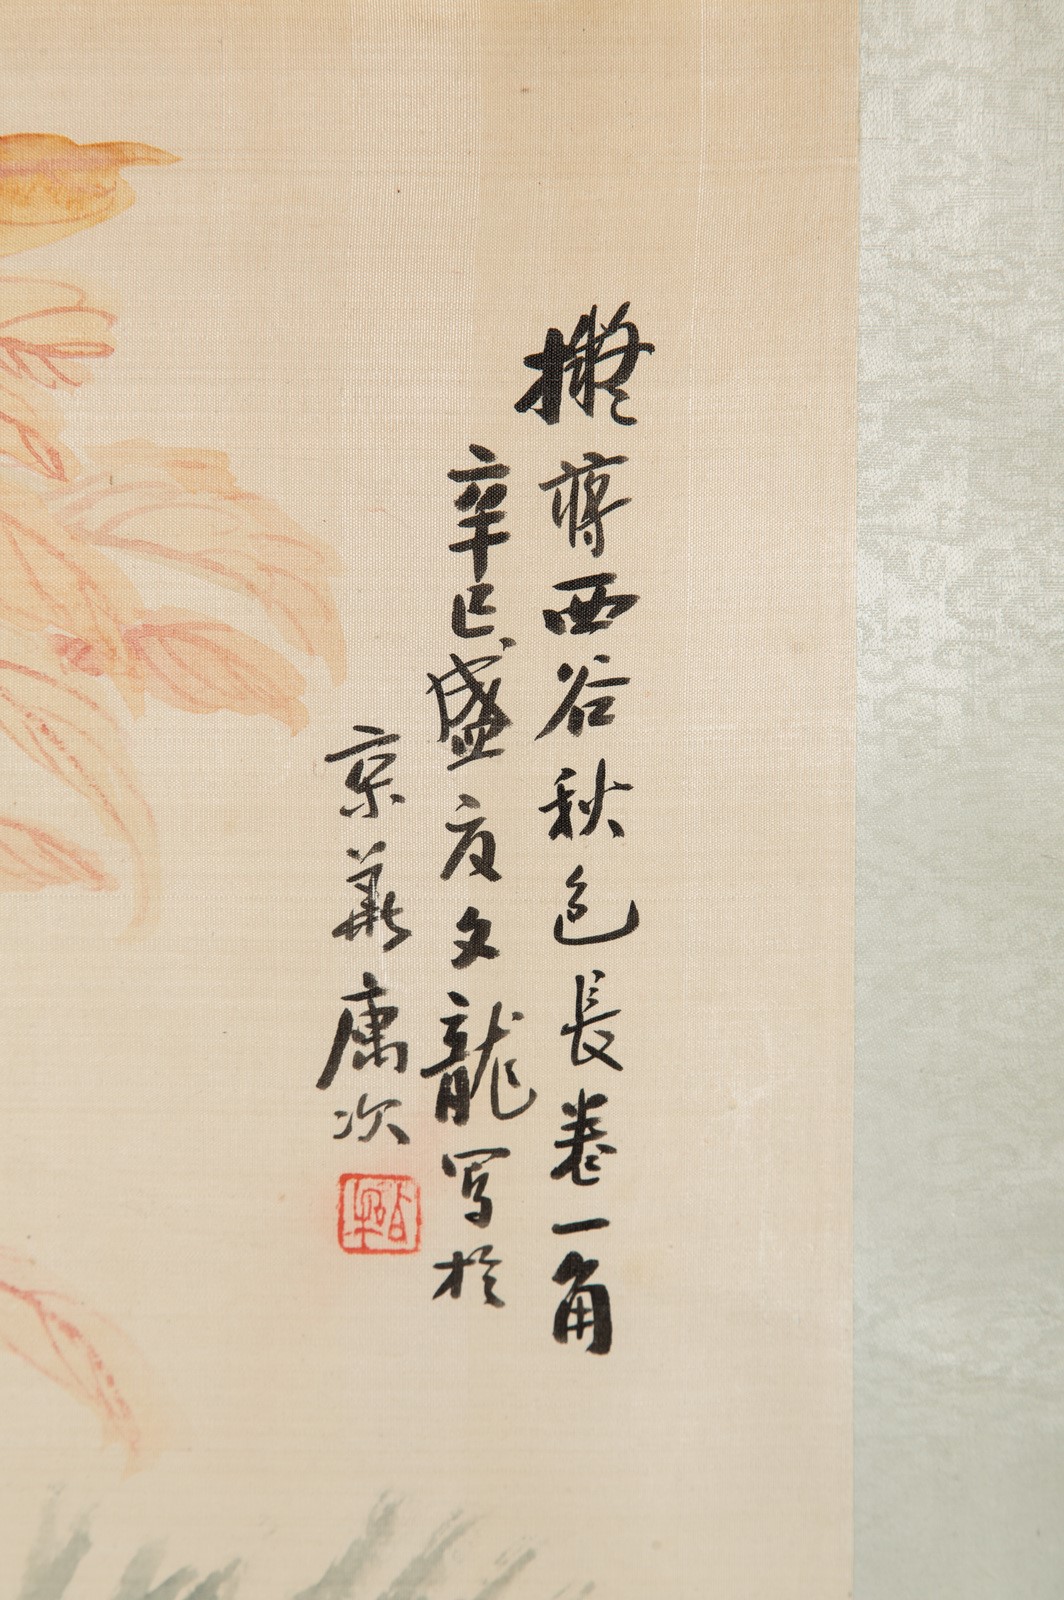 擬蔣西谷秋色長卷一角
辛巳盛夏文龍写於
京華寓次